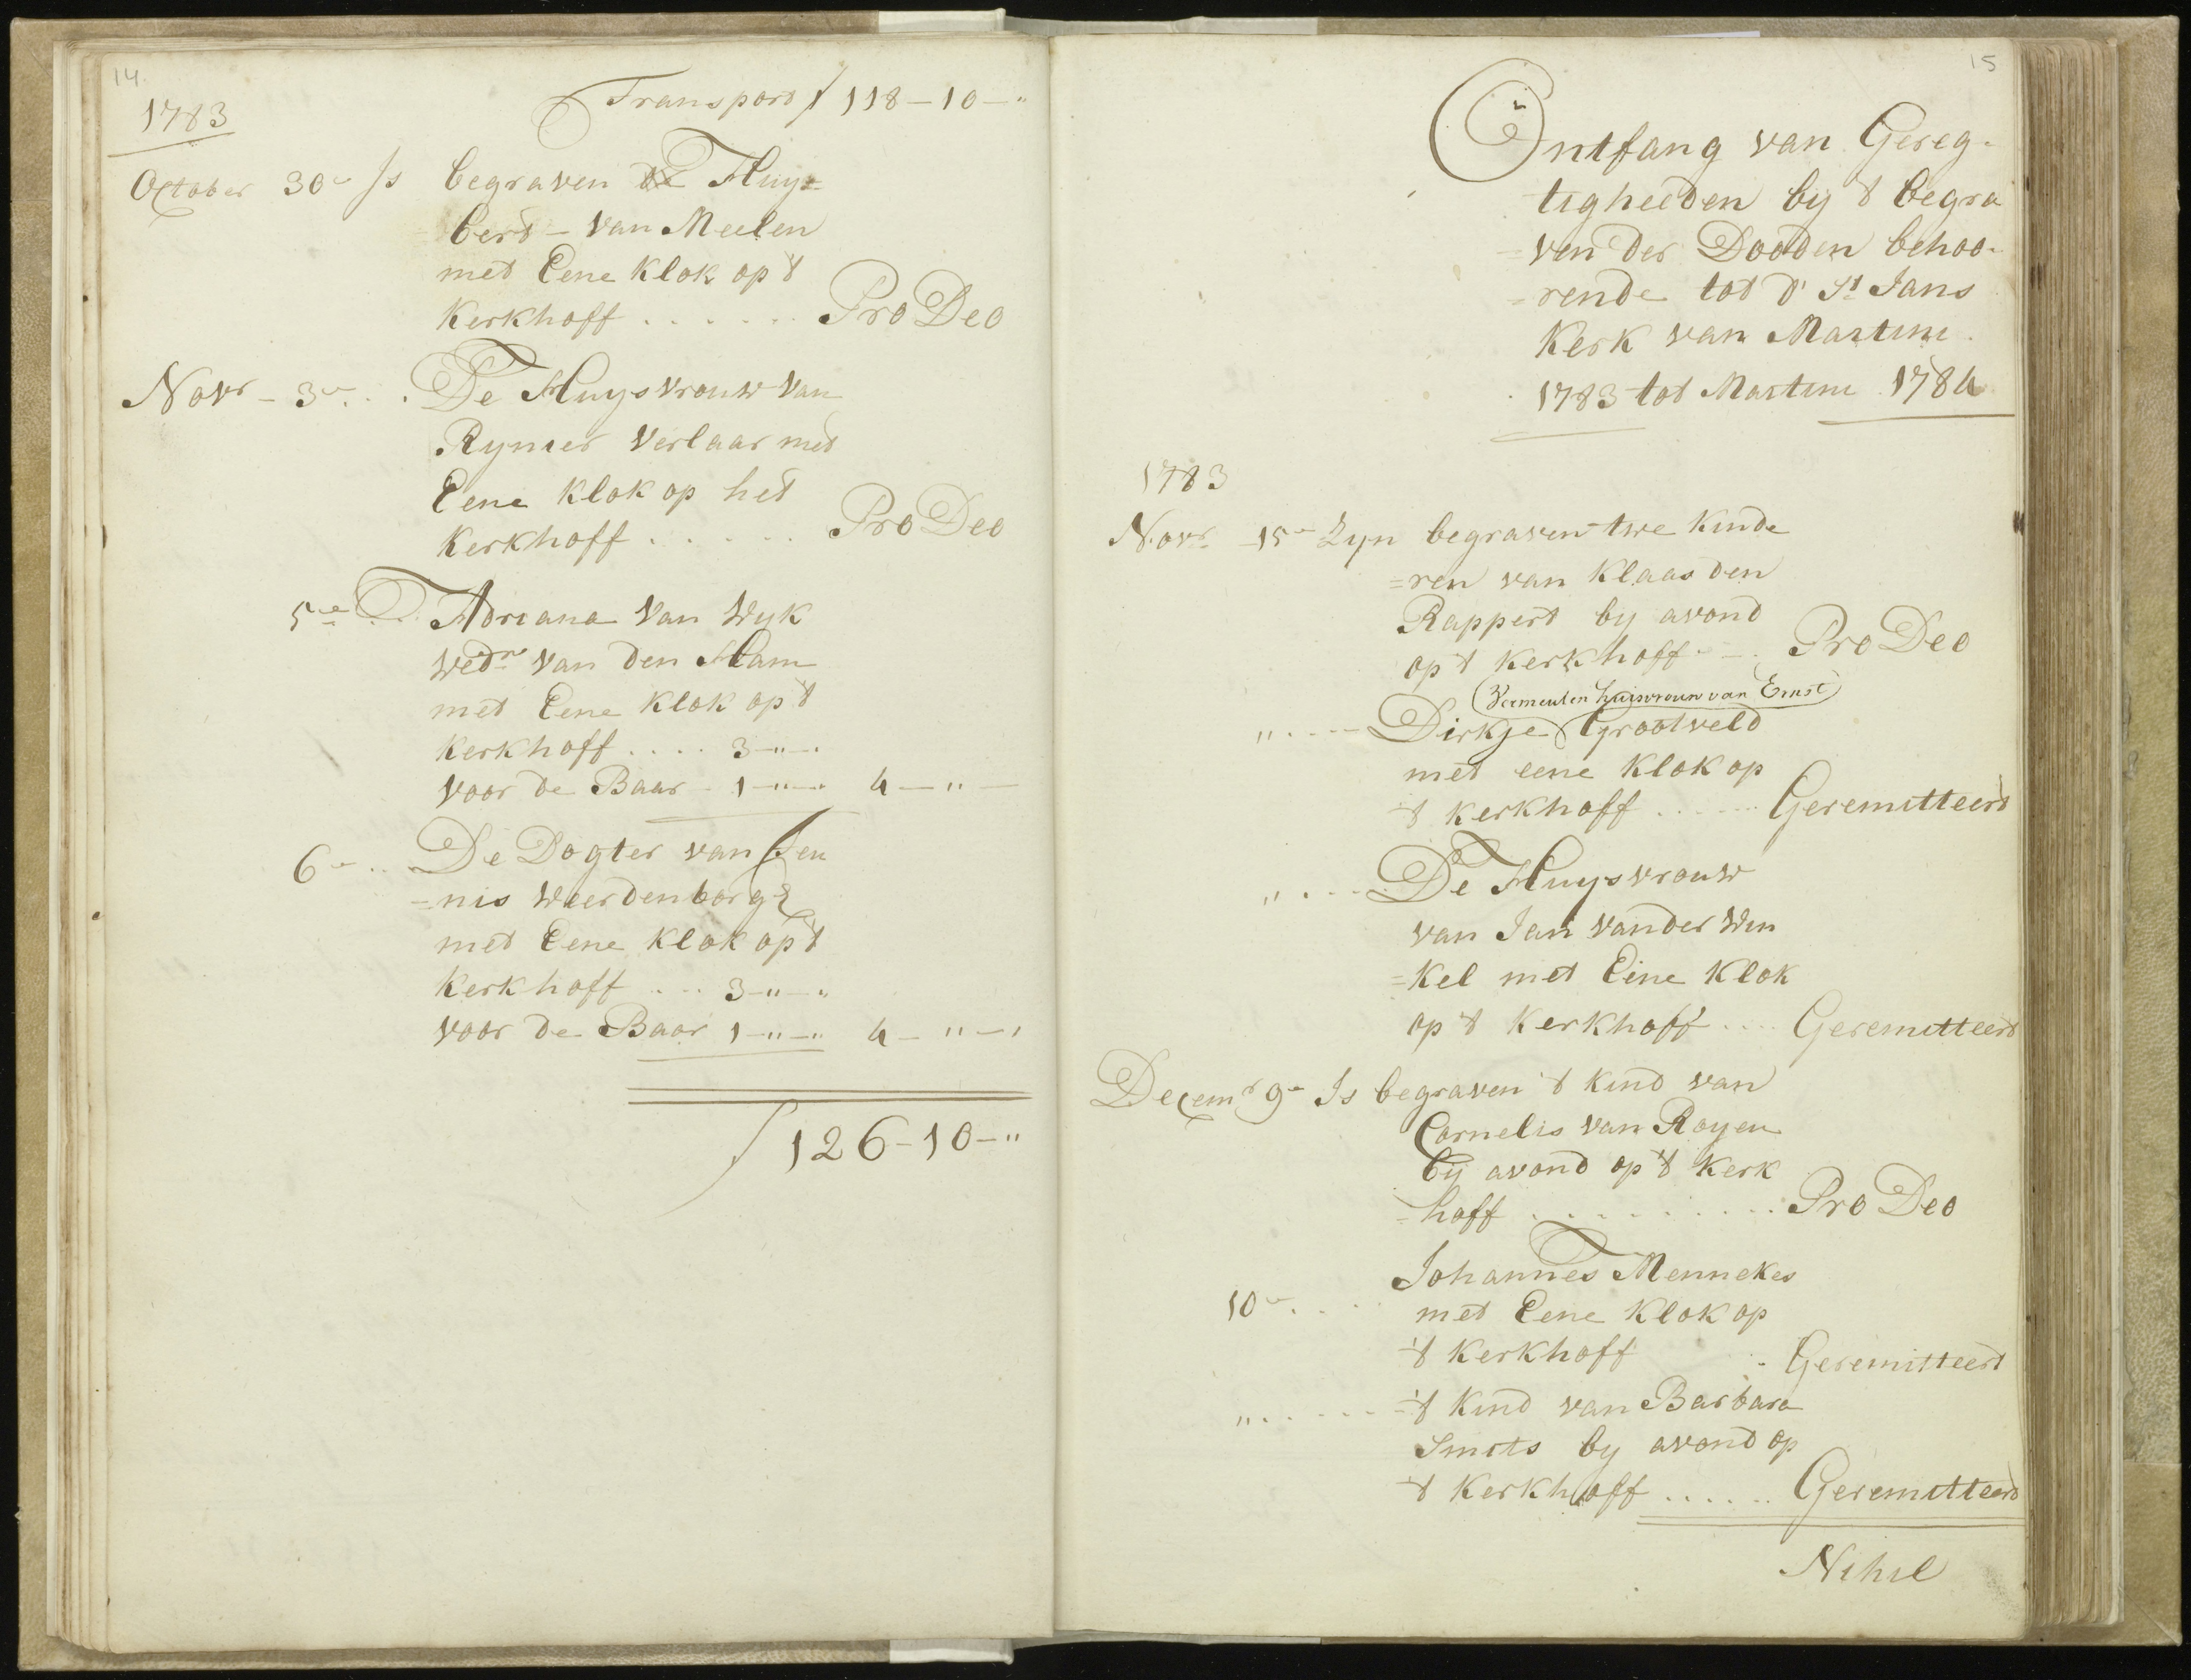 14.
1783
Transport ƒ 118-10-"
October 30e Is begraven Huy=
=bert - van Meelen
met Eene Klok op 't
Kerkhoff ....... Pro Deo
Novr - 3e ... De Huysvrouw van
Rynier Verlaar met
Eene Klok op het
Kerkhoff ...... Pro Deo
5e ... Adriana van Wyk
Wedne van den Ham
met Eene Klok op 't
Kerkhoff .... 3-"-"
voor de Baar - 1-"-" 4-"-
6e .. De Dogter van Jen
=nis Weerdenborg
met Eene Klok op 't
Kerkhoff ... 3-"-"
voor de Baar 1-"-" 4-"-"
ƒ 126-10-"
15
Ontfang van Gereg-
tigheeden by 't begra
=ven der Dooden behoo-
=rende tot d' St Jans
Kerk van Martini
1783 tot Martini 1784
1783
Novr 15e Zyn begraven twe Kinde
=ren van Klaas den
Rappert by avond
op 't Kerkhoff - . Pro Deo
(Vermeulen huisvrouw van Ernst)
" .... Dirkje Grootveld
met eene Klok op
't Kerkhoff ...... Geremitteerd
" .... De Huysvrouw
van Jan vander Win
=Kel met Eine Klok
op 't Kerkhoff .... Geremitteerd
Decemr 9e Is begraven 't Kind van
Cornelis van Royen
by avond op 't Kerk
=hoff .......... Pro Deo
Johannes Mennekes
10e ... met Eene Klok op
't Kerkhoff - Geremitteerd
" ..... 't Kind van Barbara
Smits by avond op
't Kerkhoff ...... Geremitteerd
Nihil